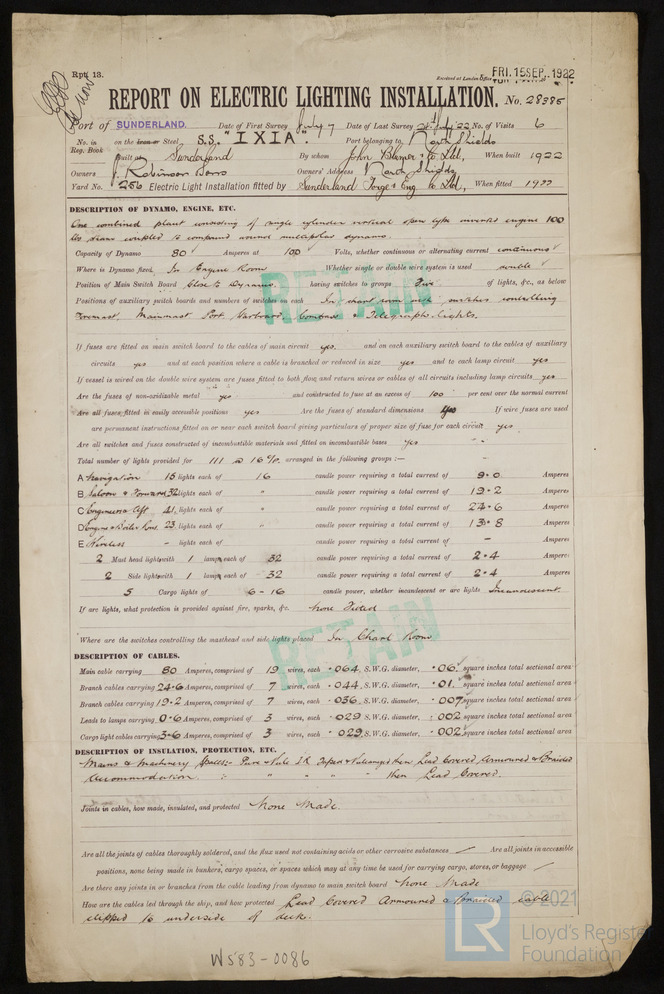 Rpt. 13.
Received at London Office FRI. 15 SEP. 1922
REPORT ON ELECTRIC LIGHTING INSTALLATION. No. 28385
Port of SUNDERLAND. Date of First Survey July 7 Date of Last Survey July 22 No. of Visits 6
No. in Reg. Book on the Iron or Steel S.S. "IXIA". Port belonging to North Shields
Built at Sunderland By whom John Blumer & Co. Ltd, When built 1922
Owners J. Robinson Sons Owners' Address North Shields
Yard No. 256 Electric Light Installation fitted by Sunderland Forge & Eng Co. Ltd, When fitted 1922
DESCRIPTION OF DYNAMO, ENGINE, ETC.
One combined plant consisting of single cylinder vertical open type inverted engine 100
lbs steam coupled to compound wound multipolar dynamo.
Capacity of Dynamo 80 Amperes at 100 Volts, whether continuous or alternating current continuous
Where is Dynamo fixed, In Engine Room Whether single or double wire system is used double
Position of Main Switch Board Close to Dynamo. having switches to groups Five of lights, &c., as below
Positions of auxiliary switch boards and numbers of switches on each In chart room with switches controlling
Foremast, Mainmast Port Starboard, Compass & Telegraph lights.
If fuses are fitted on main switch board to the cables of main circuit yes, and on each auxiliary switch board to the cables of auxiliary
circuits yes and at each position where a cable is branched or reduced in size yes and to each lamp circuit yes
If vessel is wired on the double wire system are fuses fitted to both flow and return wires or cables of all circuits including lamp circuits yes
Are the fuses of non-oxidizable metal yes and constructed to fuse at an excess of 100 per cent over the normal current
Are all fuses fitted in easily accessible positions yes Are the fuses of standard dimensions yes If wire fuses are used
are permanent instructions fitted on or near each switch board giving particulars of proper size of fuse for each circuit yes
Are all switches and fuses constructed of incombustible materials and fitted on incombustible bases yes
Total number of lights provided for 111 arranged in the following groups :—
A Navigation 15 lights each of 16 candle power requiring a total current of 9.0 Amperes
B Saloon & Forward 32 lights each of " candle power requiring a total current of 19.2 Amperes
C Engineers Aft 41 lights each of " candle power requiring a total current of 24.6 Amperes
D Engine & Boiler Room 23 lights each of " candle power requiring a total current of 13.8 Amperes
E Wireless - lights each of candle power requiring a total current of - Amperes
2 Mast head lights with 1 lamp each of 32 candle power requiring a total current of 2.4 Amperes
2 Side lights with 1 lamp each of 32 candle power requiring a total current of 2.4 Amperes
5 Cargo lights of 6 - 16 candle power, whether incandescent or arc lights Incandescent.
If arc lights, what protection is provided against fire, sparks, &c. None Fitted
Where are the switches controlling the masthead and side lights placed In Chart Room
DESCRIPTION OF CABLES.
Main cable carrying 80 Amperes, comprised of 19 wires, each .064 S.W.G. diameter, .06 square inches total sectional area
Branch cables carrying 24.6 Amperes, comprised of 7 wires, each .044 S.W.G. diameter, .01 square inches total sectional area
Branch cables carrying 19.2 Amperes, comprised of 7 wires, each .036 S.W.G. diameter, .007 square inches total sectional area
Leads to lamps carrying 0.6 Amperes, comprised of 3 wires, each .029 S.W.G. diameter, .002 square inches total sectional area
Cargo light cables carrying 3.6 Amperes, comprised of 3 wires, each .029 S.W.G. diameter, .002 square inches total sectional area
DESCRIPTION OF INSULATION, PROTECTION, ETC.
Mains & Machinery Spaces:- Pure & Vulc I.R. Taped & Vulcanized then Lead Covered Armoured & Braided
Accommodation. " " " then Lead Covered.
Joints in cables, how made, insulated, and protected None Made.
Are all the joints of cables thoroughly soldered, and the flux used not containing acids or other corrosive substances — Are all joints in accessible
positions, none being made in bunkers, cargo spaces, or spaces which may at any time be used for carrying cargo, stores, or baggage —
Are there any joints in or branches from the cable leading from dynamo to main switch board None Made
How are the cables led through the ship, and how protected Lead Covered Armoured & Braided cable
clipped to underside of deck.
RETAIN
RETAIN
© 2021
LR
Lloyd's Register
Foundation
W583-0086